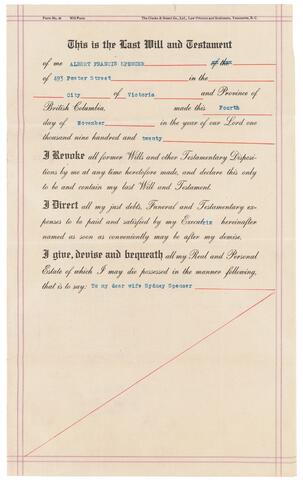 Form No. Will Form The Clarke & Stuart Co., Ltd., Law Printers and Stationers, Vancouver, B.C.
This is the Last Will and Testament
of me ALBERT FRANCIS SPENCER of the
of 493 Foster Street in the
City of Victoria and Province of
British Columbia, made this Fourth
day of November in the year of our Lord one
thousand nine hundred and twenty
I Revoke all former Wills and other Testamentary Disposi-
tions by me at any time heretofore made, and declare this only
to be and contain my last Will and Testament.
I Direct all my just debts, Funeral and Testamentary ex-
penses to be paid and satisfied by my Executrix hereinafter
named as soon as conveniently may be after my demise.
I give, devise and bequeath all my Real and Personal
Estate of which I may die possessed in the manner following,
that is to say: To my dear wife Sydney Spencer